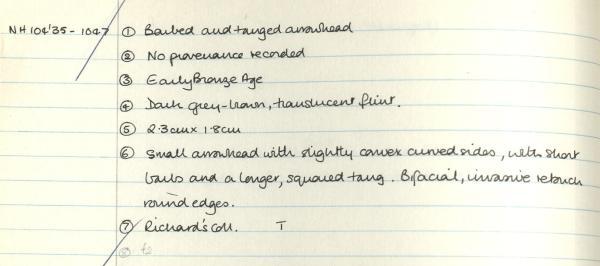 NH104'35-1047 ① Barbed and tanged arrowhead
② No provenance recorded
③ Early Bronze Age
④ Dark grey-brown, translucent flint.
⑤ 2.3cm x 1.8cm
⑥ Small arrowhead with slightly convex curved sides, with short
barbs and a longer, squared tang. Bifacial, invasive retouch
round edges.
⑦ Richard's Coll. T
⑧